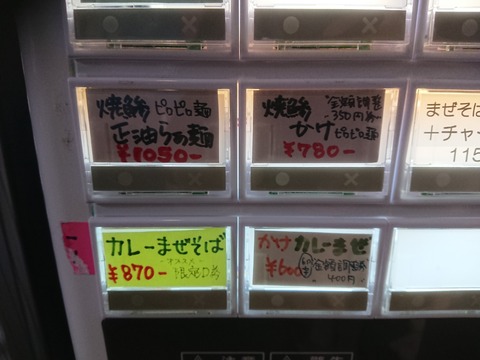 焼鯵 ピロピロ麺
正油らぁ麺
¥1050-
焼鯵
金額調整
-350円券
かけ
ピロピロ麺
¥780-
まぜそば
+チャー
115
カレーまぜそば
-オススメ-
¥870-
かけカレーまぜ
¥600
金額調整券
400円